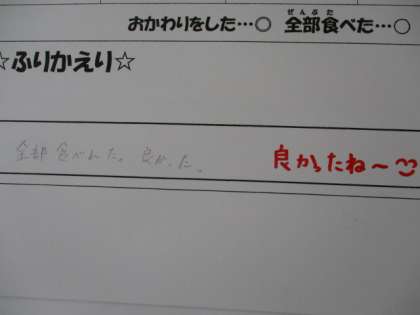 おかわりをした…◎ 全部食べた…○
ぜんぶた
☆ふりかえり☆
全部食べれた。良かった。
良かったね〜